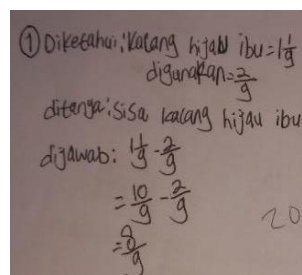 ① Diketahui: Kacang hijau ibu = 1 1/9
digunakan = 2/9
ditanya: sisa kacang hijau ibu
dijawab: 1 1/9 - 2/9
= 10/9 - 2/9
= 8/9
20